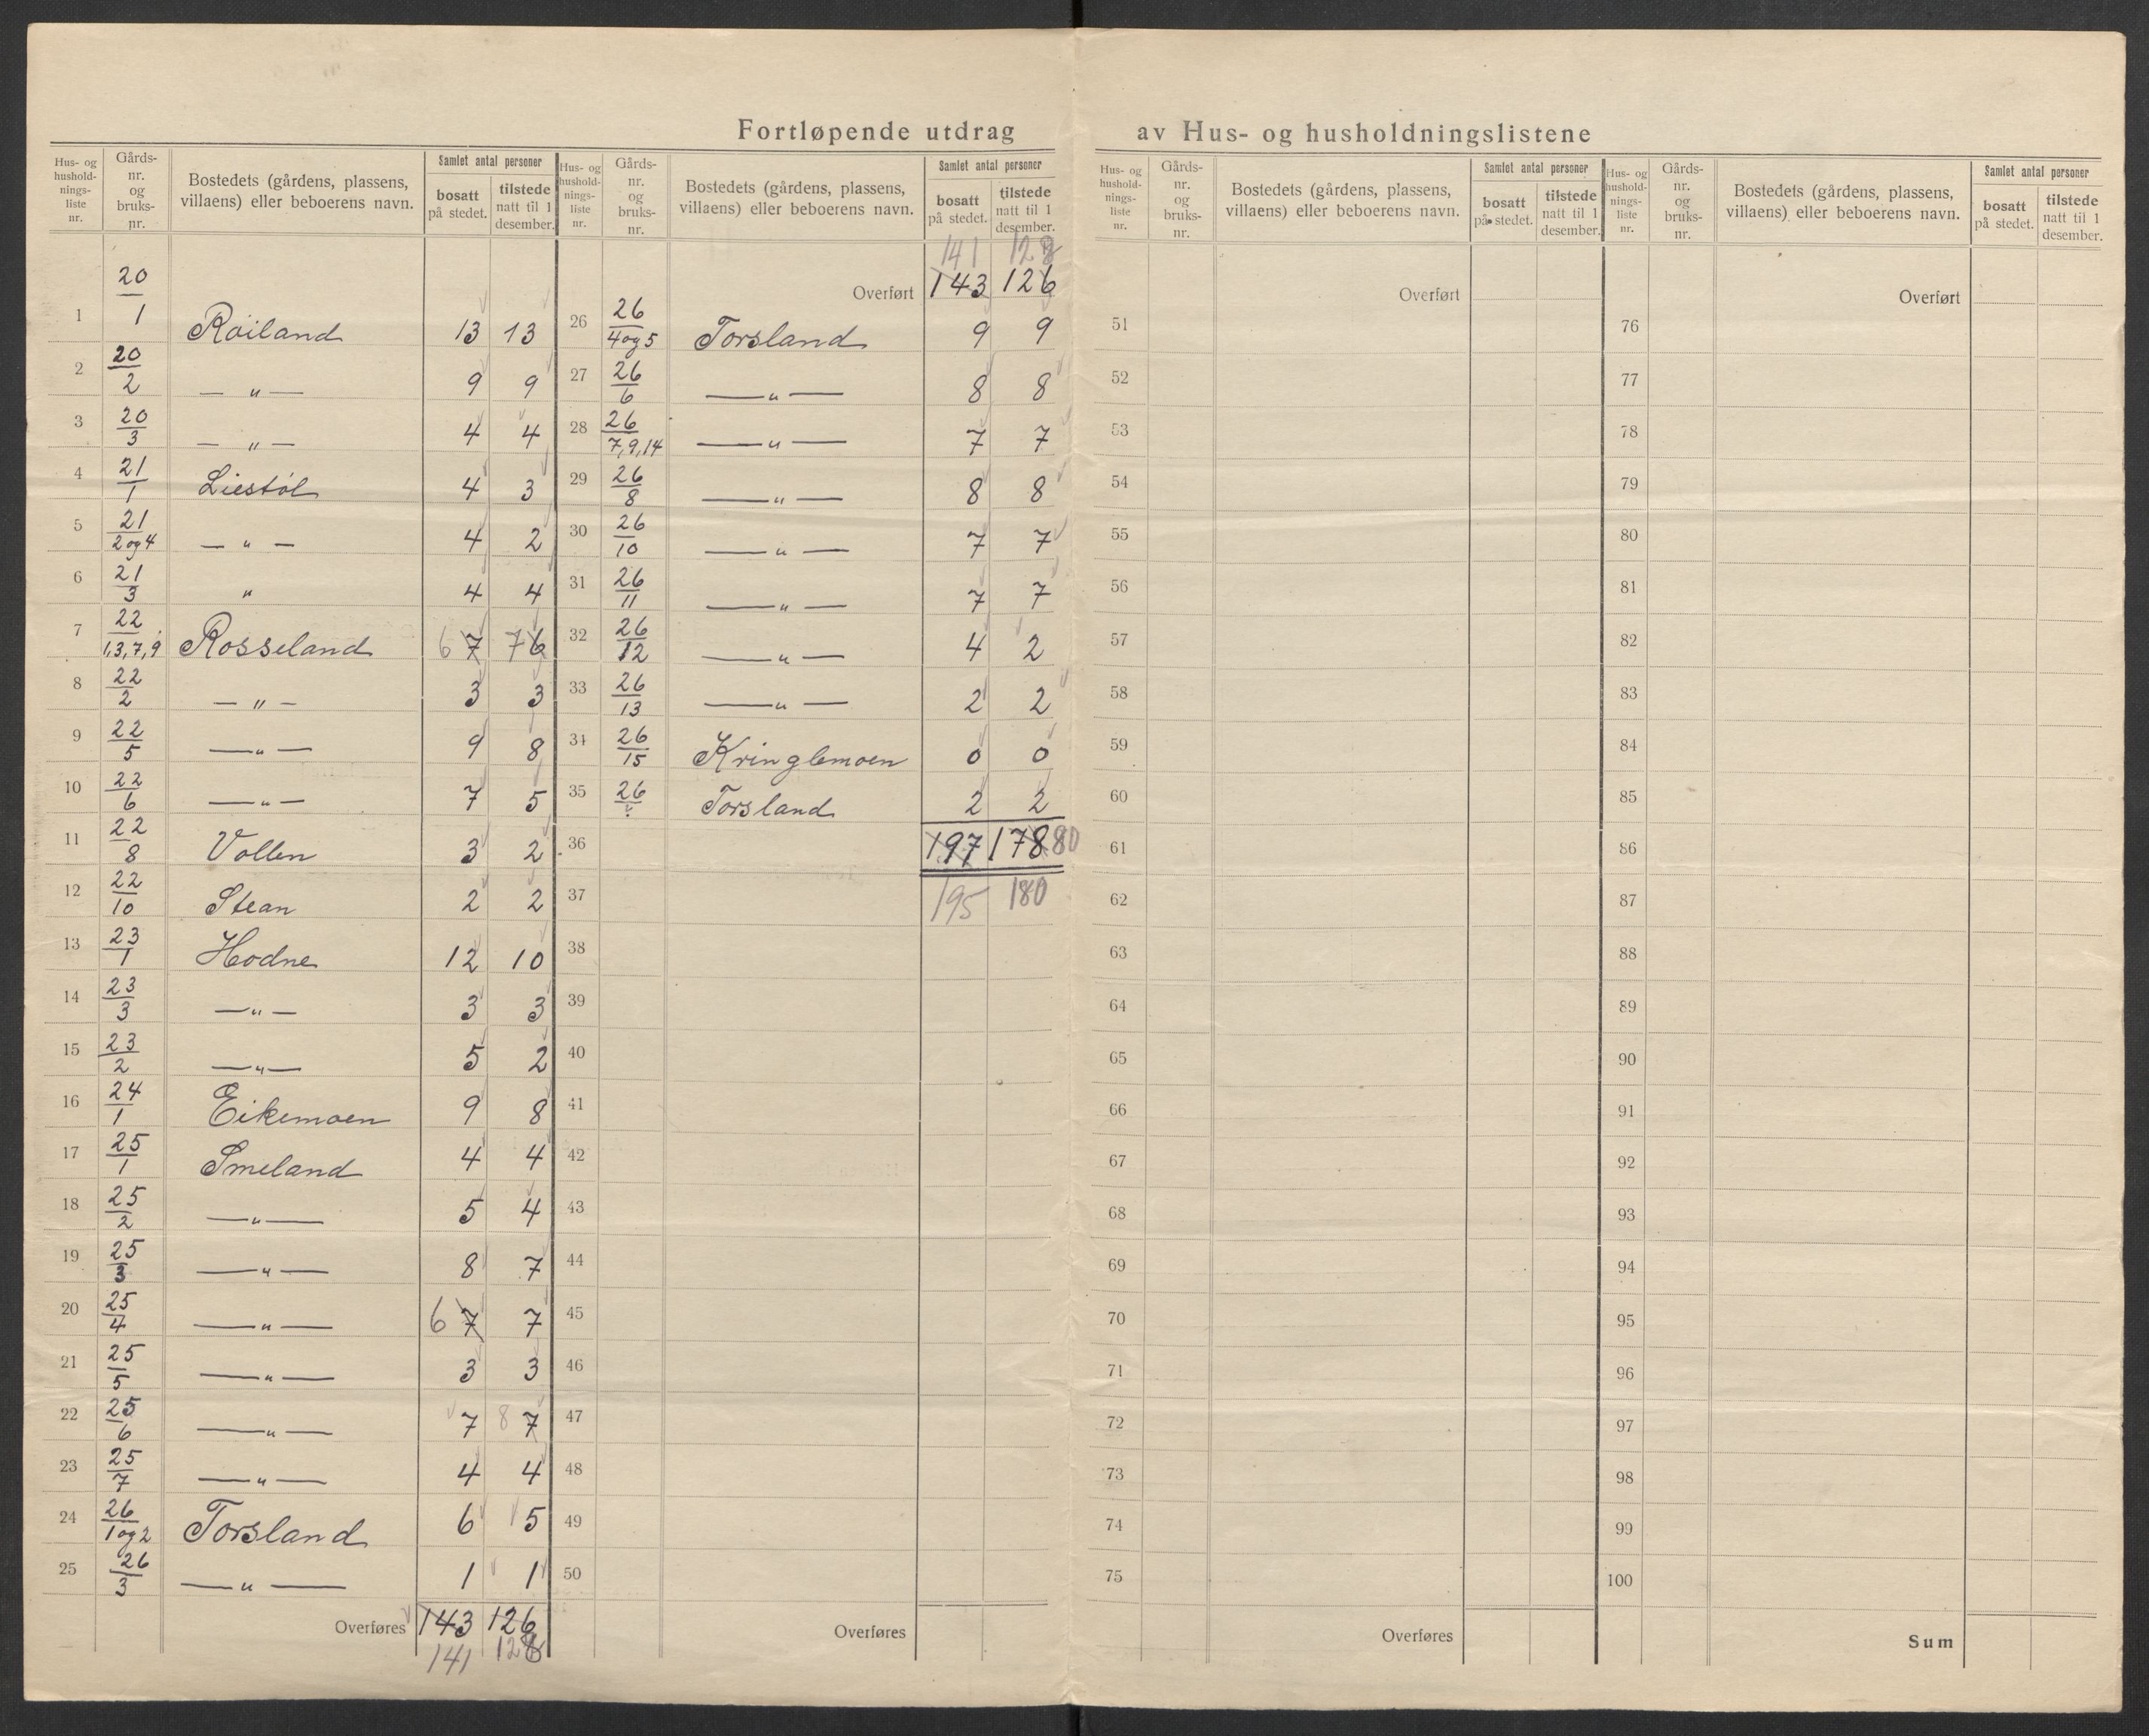 Fortløpende utdrag av Hus- og husholdningslistene
Hus- og hushold-nings-liste nr. | Gårds-nr. og bruks-nr. | Bostedets (gårdens, plassens, villaens) eller beboerens navn. | Samlet antal personer | bosatt på stedet. | tilstede natt til 1 desember.
1 20/1 Röiland 13 13
2 20/2 — " — 9 9
3 20/3 — " — 4 4
4 21/1 Liestöl 4 3
5 21/2 og 4 — " — 4 2
6 21/3 " 4 4
7 22/1,3,7,9 Rosseland 6 7 7 6
8 22/2 — " — 3 3
9 22/5 — " — 9 8
10 22/6 — " — 7 5
11 22/8 Vollen 3 2
12 22/10 Stean 2 2
13 23/1 Hodne 12 10
14 23/3 — " — 3 3
15 23/2 — " — 5 2
16 24/1 Eikemoen 9 8
17 25/1 Smeland 4 4
18 25/2 — " — 5 4
19 25/3 — " — 8 7
20 25/4 — " — 6 7 7
21 25/5 — " — 3 3
22 25/6 — " — 7 8 7
23 25/7 — " — 4 4
24 26/1 og 2 Torsland 6 5
25 26/3 — " — 1 1
Overføres 143 126
141 128
Hus- og hushold-nings-liste nr. | Gårds-nr. og bruks-nr. | Bostedets (gårdens, plassens, villaens) eller beboerens navn. | Samlet antal personer | bosatt på stedet. | tilstede natt til 1 desember.
141 128
Overført 143 126
26 26/4 og 5 Torsland 9 9
27 26/6 — " — 8 8
28 26/7,9,14 — " — 7 7
29 26/8 — " — 8 8
30 26/10 — " — 7 7
31 26/11 — " — 7 7
32 26/12 — " — 4 2
33 26/13 — " — 2 2
34 26/15 Kringlemoen 0 0
35 26/? Torsland 2 2
36 197 178 80
37 195 180
38
39
40
41
42
43
44
45
46
47
48
49
50
Overføres
Hus- og hushold-nings-liste nr. | Gårds-nr. og bruks-nr. | Bostedets (gårdens, plassens, villaens) eller beboerens navn. | Samlet antal personer | bosatt på stedet. | tilstede natt til 1 desember.
Overført
51
52
53
54
55
56
57
58
59
60
61
62
63
64
65
66
67
68
69
70
71
72
73
74
75
Overføres
Hus- og hushold-nings-liste nr. | Gårds-nr. og bruks-nr. | Bostedets (gårdens, plassens, villaens) eller beboerens navn. | Samlet antal personer | bosatt på stedet. | tilstede natt til 1 desember.
Overført
76
77
78
79
80
81
82
83
84
85
86
87
88
89
90
91
92
93
94
95
96
97
98
99
100
Sum